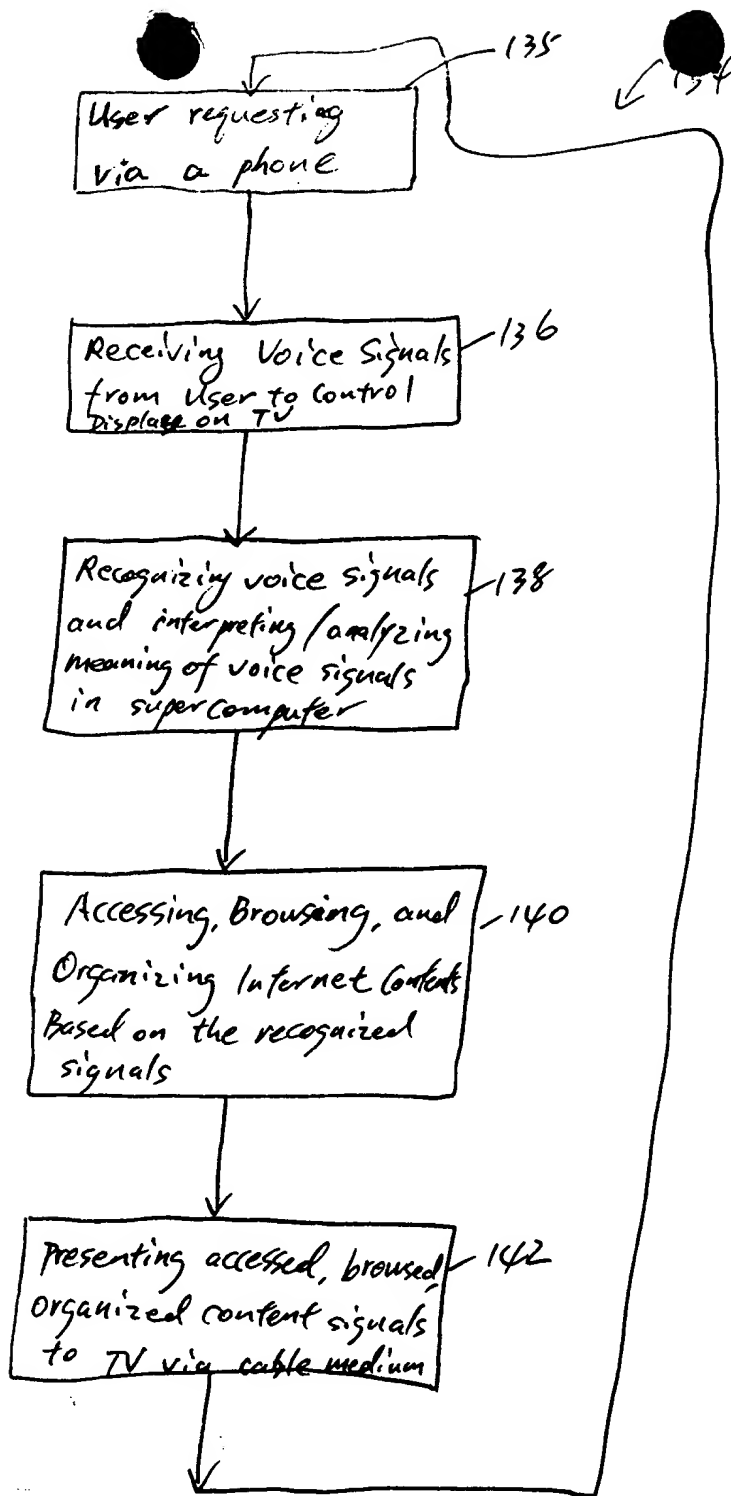 135
User requesting
via a phone
136
Receiving Voice Signals
from User to Control
Display on TV
138
Recognizing voice signals
and interpreting/analyzing
meaning of voice signals
in supercomputer
140
Accessing, Browsing, and
Organizing Internet Contents
Based on the recognized
signals
142
Presenting accessed, browsed,
organized content signals
to TV via cable medium